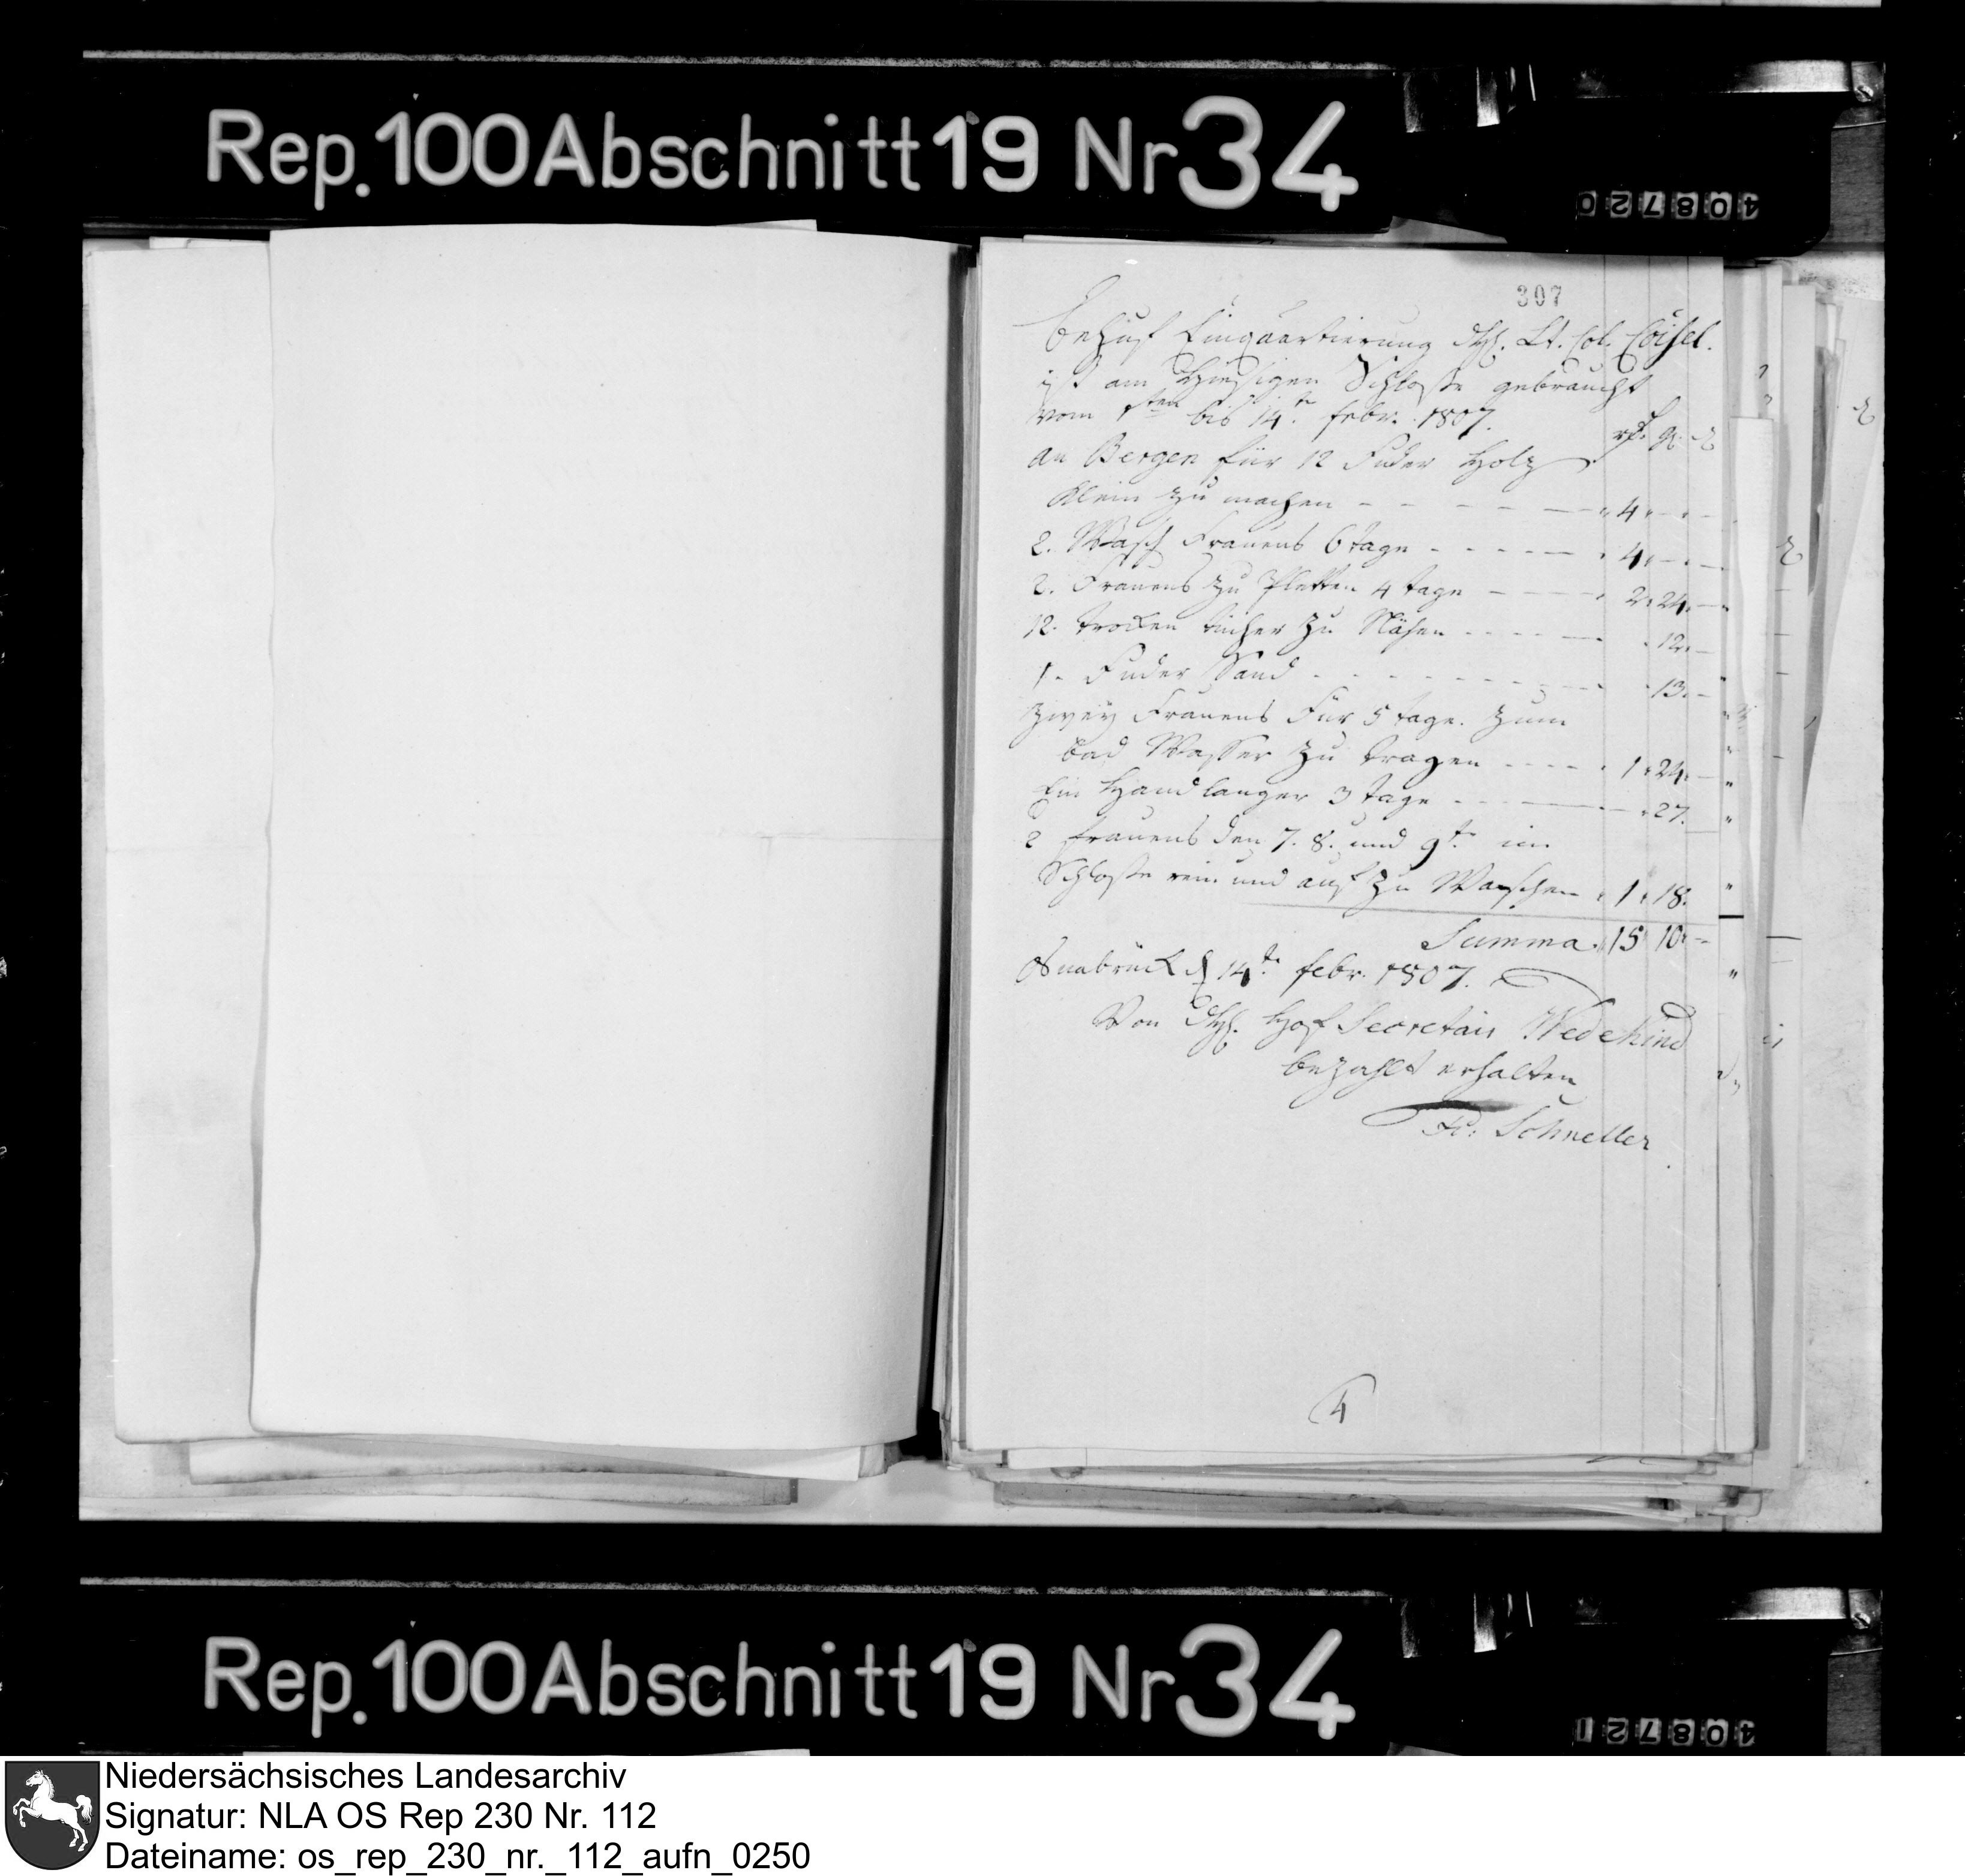 Rep. 100 Abschnitt 19 Nr 34
408720
307
Behuf Einquartierung Lt. Col. Loisel.
ist am Hiesigen Schloße gebraucht
vom 1ten bis 14te febr. 1807.
an Bergen für 12 Fuder Holz
klein zu machen - - - - - 4 " - " -
2. Wasch Frauens 6 tage - - - - - 4 " - " -
2. Frauens zu Pletten 4 tage - - - 2 " 24 " -
12. trocken tücher zu Nähen - - - - " 12 " -
1. Fuder Sand - - - - - - - " 13 " -
zwey Frauens Für 5 tage. zum
bad Wasser zu tragen - - - - 1 " 24 " -
Ein Handlanger 3 tage - - - - " 27.
2 frauens den 7. 8. und 9te im
Schloße rein und auf zu Waschen " 1 " 18.
Summa. 15 10 " -
Osnabrück d 14te febr. 1807.
Von Hof Secretair Wedekind
bezahlt erhalten
Fr: Schneller
4
Rep. 100 Abschnitt 19 Nr 34
408721
Niedersächsisches Landesarchiv
Signatur: NLA OS Rep 230 Nr. 112
Dateiname: os_rep_230_nr._112_aufn_0250